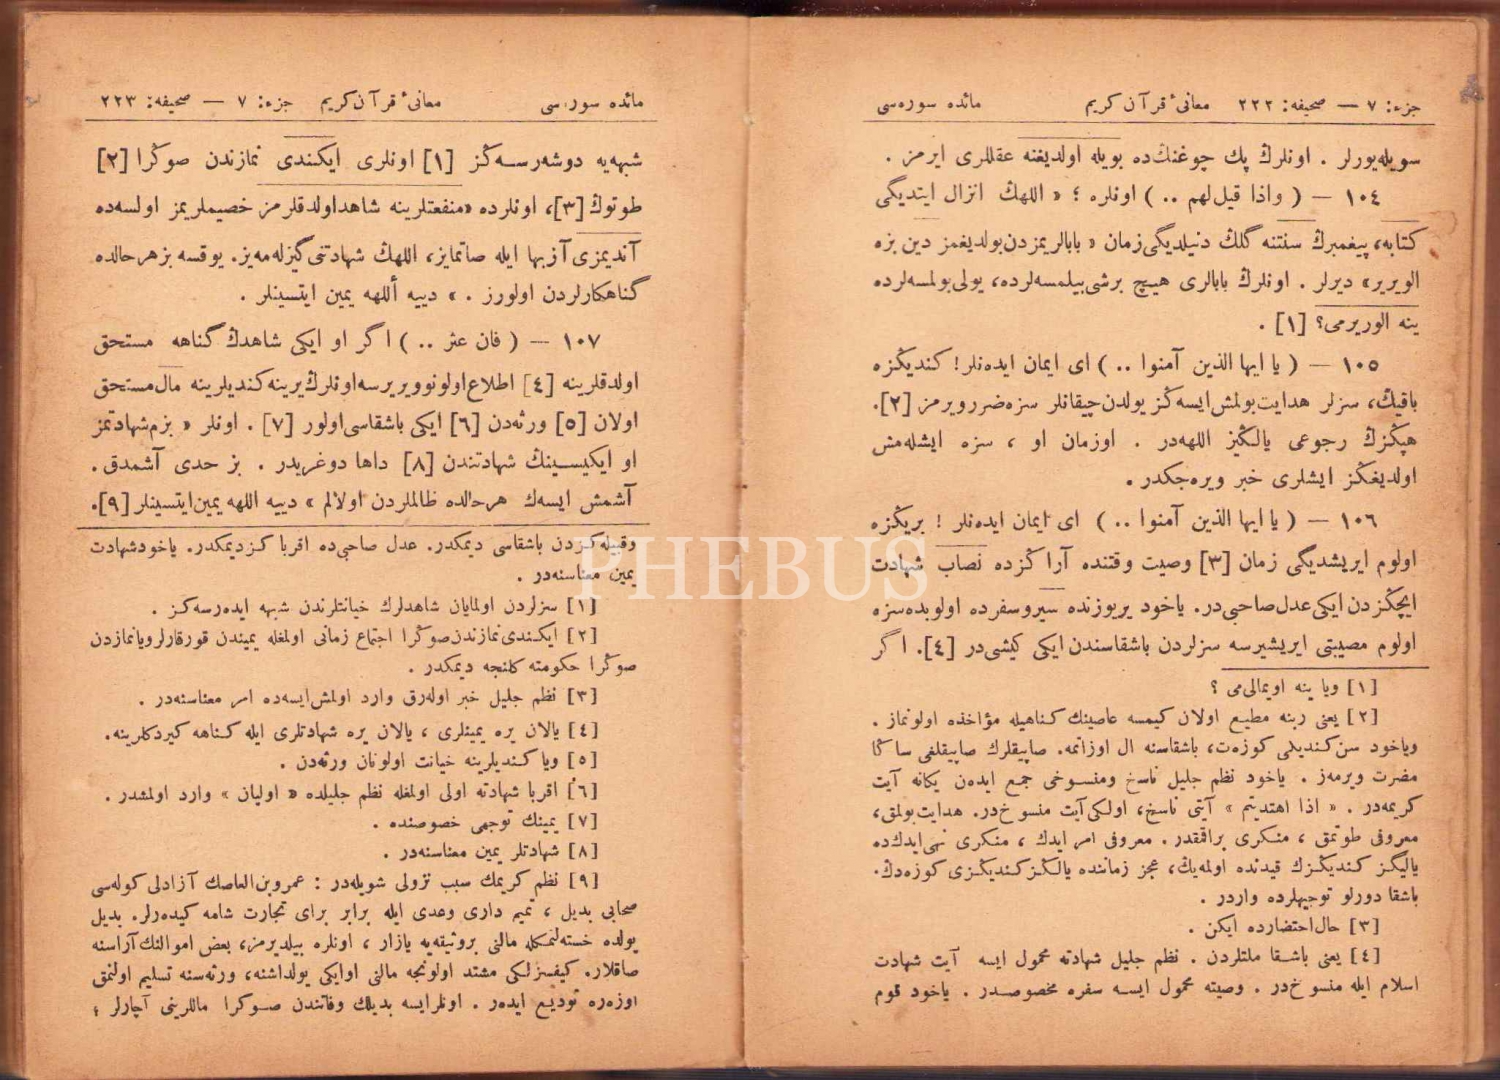 جزء: ٧ — صحيفه: ٢٢٢ معانئ قرآن كريم مائده سوره‌سى
سويله‌يورلر . اونلرڭ پك چوغنڭ‌ده بويله اولديغنه عقللرى ايرمز .
١٠٤ — ( واذا قيل لهم .. ) اونلره ؛ « اللهڭ انزال ايتديگى
كتابه، پيغمبرڭ سنتنه گلڭ دنيلديگى زمان « بابالريمزدن بولديغمز دين بزه
الويرير» ديرلر . اونلرڭ بابالرى هيچ برشى بيلمسه‌لرده، يولى بولمسه‌لرده
ينه الويررمى؟ [١] .
١٠٥ — ( يا ايها الذين آمنوا .. ) اى ايمان ايده‌نلر! كنديڭزه
باقيڭ، سزلر هدايت بولمش ايسه‌ڭز يولدن چيقانلر سزه ضرر ويرمز [٢].
هپڭزڭ رجوعى يالڭيز اللهه‌در . اوزمان او ، سزه ايشله‌مش
اولديغڭز ايشلرى خبر ويره‌جكدر .
١٠٦ — ( يا ايها الذين آمنوا .. ) اى ايمان ايده‌نلر ! بريڭزه
اولوم ايريشديگى زمان [٣] وصيت وقتنده آراڭزده نصاب شهادت
ايچڭزدن ايكى عدل صاحبى‌در. ياخود يريوزنده سير و سفرده اولوبده سزه
اولوم مصيبتى ايريشيرسه سزلردن باشقاسندن ايكى كيشى‌در [٤]. اگر
[١] ويا ينه اويمالى‌مى ؟
[٢] يعنى ربنه مطيع اولان كيمسه عاصينك كناهيله مؤاخذه اولونماز .
وياخود سن كنديڭى كوزه‌ت، باشقاسنه ال اوزاتمه. صاپيقلرك صاپيقلغى ساڭا
مضرت ويرمه‌ز . ياخود نظم جليل ناسخ ومنسوخى جمع ايده‌ن يكانه آيت
كريمه‌در . « اذا اهتديتم » آيتى ناسخ، اولكى آيت منسوخ‌در. هدايت بولمق،
معروفى طوتمق ، منكرى براقمقدر. معروفى امر ايدك ، منكرى نهى ايدك‌ده
يالڭز كنديڭزك قيدنده اولمه‌يڭ، عجز زماننده يالڭز كنديڭزى كوزه‌دڭ.
باشقا دورلو توجيهلرده واردر .
[٣] حال احتضارده ايكن .
[٤] يعنى باشقا ملتلردن . نظم جليل شهادته محمول ايسه آيت شهادت
اسلام ايله منسوخ‌در . وصيته محمول ايسه سفره مخصوصدر . ياخود قوم
مائده سوره‌سى معانئ قرآن كريم جزء: ٧ — صحيفه: ٢٢٣
شبهه‌يه دوشه‌رسه‌ڭز [١] اونلرى ايكندى نمازندن صوڭرا [٢]
طوتوڭ [٣]، اونلرده «منفعتلرينه شاهد اولدقلرمز خصيملريمز اولسه‌ده
آنديمزى آز بها ايله صاتمايز، اللهڭ شهادتنى گيزله‌مه‌يز. يوقسه بز هر حالده
گناهكارلردن اولورز . » دييه أللهه يمين ايتسينلر .
١٠٧ — ( فان عثر .. ) اگر او ايكى شاهدڭ گناهه مستحق
اولدقلرينه [٤] اطلاع اولونوويريرسه اونلرڭ يرينه كنديلرينه مال مستحق
اولان [٥] ورثه‌دن [٦] ايكى باشقاسى اولور [٧] . اونلر « بزم شهادتمز
او ايكيسينڭ شهادتندن [٨] داها دوغريدر . بز حدى آشمدق .
آشمش ايسه‌ك هر حالده ظالملردن اولالم » دييه اللهه يمين ايتسينلر [٩].
وقبيله‌كزدن باشقاسى ديمكدر. عدل صاحبى‌ده اقرباكز ديمكدر. ياخود شهادت
يمين معناسنه‌در .
[١] سزلردن اولمايان شاهدلرك خيانتلرندن شبهه ايده‌رسه‌كز .
[٢] ايكندى نمازندن صوڭرا اجتماع زمانى اولمغله يميندن قورقارلر ويا نمازدن
صوڭرا حكومته كلنجه ديمكدر .
[٣] نظم جليل خبر اوله‌رق وارد اولمش ايسه‌ده امر معناسنه‌در .
[٤] يالان يره يمينلرى ، يالان يره شهادتلرى ايله كناهه كيردكلرينه.
[٥] ويا كنديلرينه خيانت اولونان ورثه‌دن .
[٦] اقربا شهادته اولى اولمغله نظم جليلده « اوليان » وارد اولمشدر .
[٧] يمينك توجهى خصوصنده .
[٨] شهادتلر يمين معناسنه‌در .
[٩] نظم كريمك سبب نزولى شويله‌در : عمرو بن العاصك آزادلى كوله‌سى
صحابى بديل ، تميم دارى وعدى ايله برابر براى تجارت شامه كيده‌رلر. بديل
يولده خسته‌لنمكله مالنى بر وثيقه‌يه يازار ، اونلره بيلديرمز، بعض اموالنك آراسنه
صاقلار. كيفسزلكى مشتد اولونجه مالنى او ايكى يولداشنه، ورثه‌سنه تسليم اولنمق
اوزه‌ره توديع ايده‌ر . اونلر ايسه بديلك وفاتندن صوكرا ماللرينى آچارلر ؛
PHEBUS